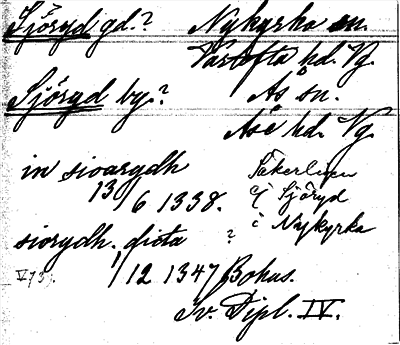 Sjöryd gd.? Nykyrka sn.
Vartofta hd. Vg.
Sjöryd by? Ås sn.
Åse hd. Vg.
in sioarydh Säkerligen
13/6 1338. ej Sjöryd
siorydh. dicta ? i Nykyrka
1/12 1347 Bohus.
V73.
Sv. Dipl. IV.